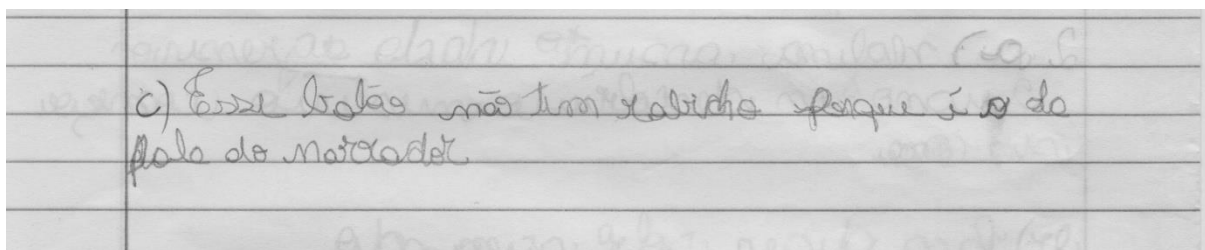 c) Esse balão não tem rabicho porque é o da
fala do narrador